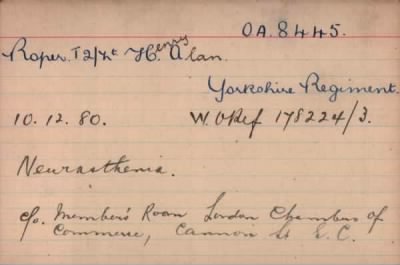 OA.8445.
Roper. T2/Lt Henry Alan.
Yorkshire Regiment.
10. 12. 80. W.O Ref 178224/3.
Neurasthenia.
c/o. Member's Room London Chambers of
Commerce, Cannon St E.C.